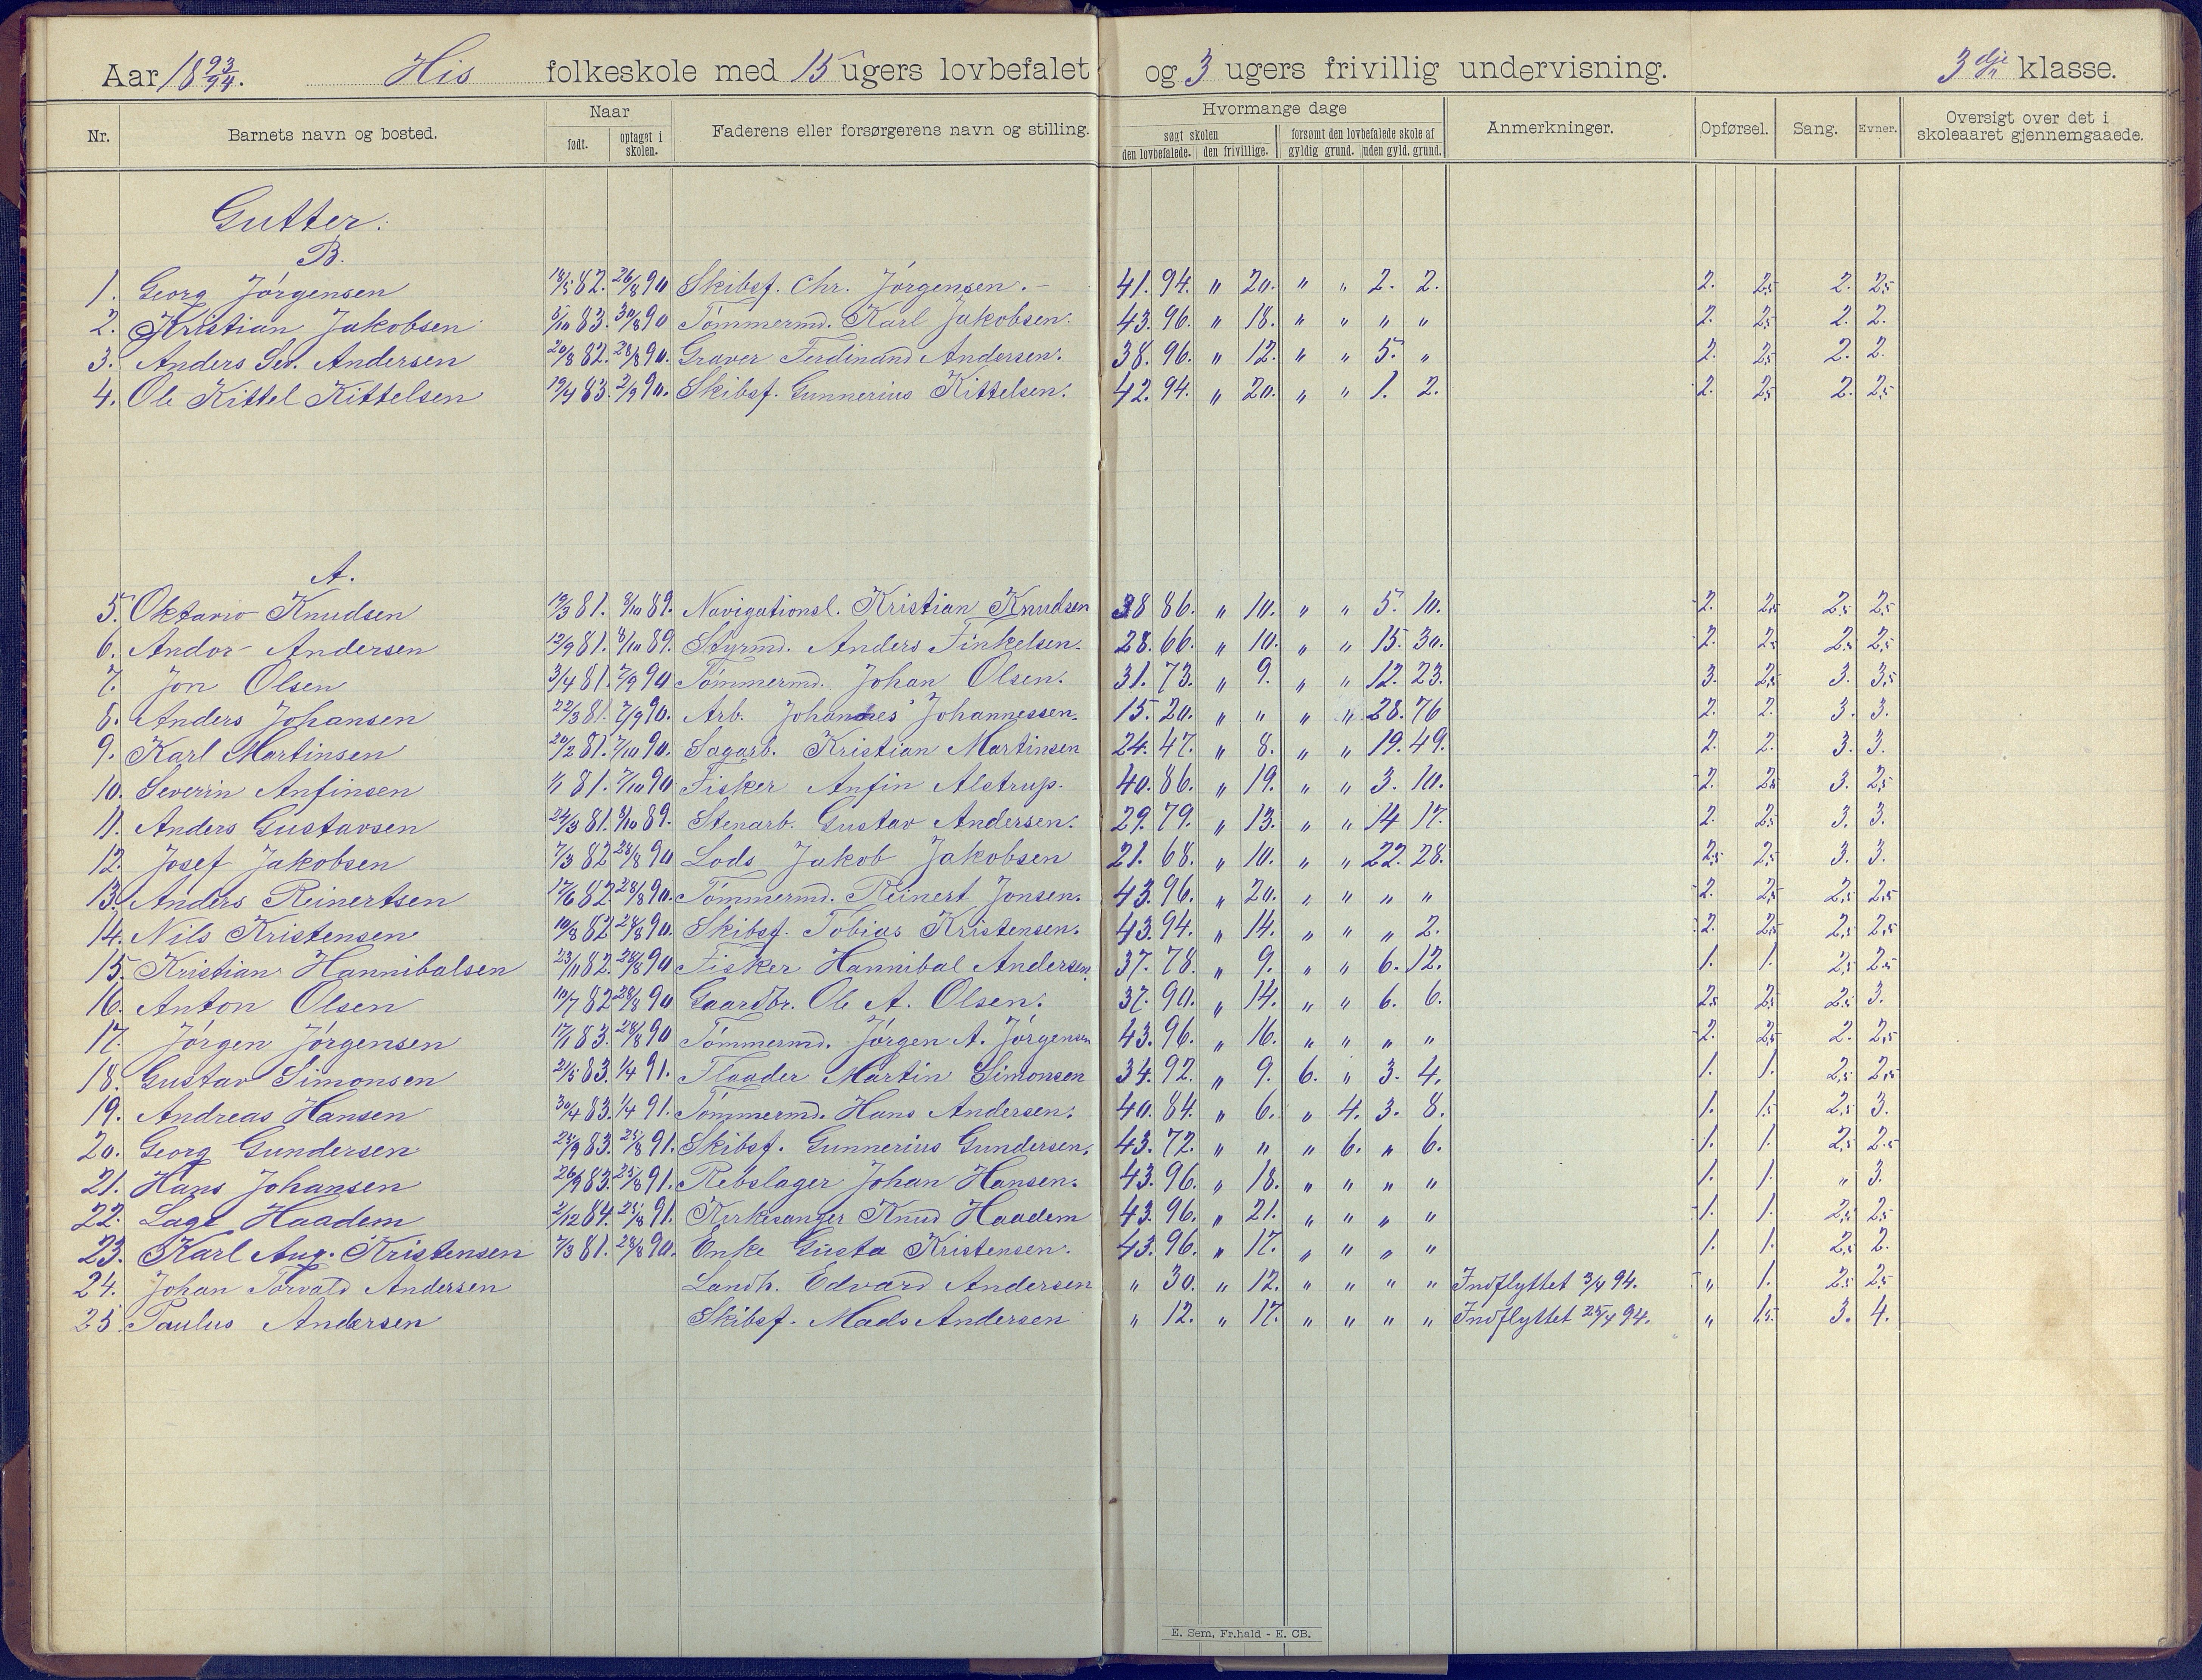 Aar 18 93/94. His folkeskole med 15 ugers lovbefalet og 3 ugers frivillig undervisning. 3dje klasse.
Nr. Barnets navn og bosted. Naar født. optaget i skolen. Faderens eller forsørgerens navn og stilling. Hvormange dage søgt skolen den lovbefalede. den frivillige. forsømt den lovbefalede skole af gyldig grund. uden gyld. grund. Anmerkninger. Opførsel. Sang. Evner. Oversigt over det i skoleaaret gjennemgaaede.
Gutter.
B.
1. Georg Jörgensen 18/5 82. 26/8 90 Skibsf. Chr. Jörgensen. 41. 94. " 20. " " 2. 2. 2. 2,5 2. 2,5
2. Kristian Jakobsen 5/10 83. 30/8 90 Tömmermd. Karl Jakobsen. 43. 96. " 18. " " " " 2. 2,5 2. 2.
3. Anders Sev. Andersen 20/8 82. 28/8 90. Graver Ferdinand Andersen. 38. 96. " 12. " " 5. " 2. 2,5 2. 2.
4. Ole Kittel Kittelsen 19/4 83. 2/9 90. Skibsf. Gunnerius Kittelsen. 42. 94. " 20. " " 1. 2. 2. 2,5 2. 2,5
A.
5. Oktavio Knudsen 19/3 81. 8/10 89. Navigationsl. Kristian Knudsen 38 86. " 10. " " 5. 10. 2. 2,5 2,5 2,5
6. Andor Andersen 12/9 81. 8/10 89. Styrmd. Anders Finkelsen. 28. 66. " 10. " " 15. 30. 2. 2,5 2,5 2,5
7. Jon Olsen 3/4 81. 7/9 90 Tömmermd. Johan Olsen. 31. 73. " 9. " " 12. 23. 3. 2,5 3. 3,5
8. Anders Johansen 22/3 81. 7/9 90. Arb. Johannes Johannessen. 15. 20. " " " " 28. 76 2. 2. 3. 3.
9. Karl Martinsen 20/2 81. 7/10 90. Sagarb. Kristian Martinsen 24. 47. " 8. " " 19. 49. 2. 2. 3. 3.
10. Severin Anfinsen 1/1 81. 7/10 90 Fisker Anfin Alstrup. 40. 86. " 19. " " 3. 10. 2. 2,5 3. 2,5
11. Anders Gustavsen 24/3 81. 8/10 89. Stenarb. Gustav Andersen. 29. 79. " 13. " " 14 17. 2. 2,5 3. 3.
12. Josef Jakobsen 7/3 82 28/8 90 Lods Jakob Jakobsen 21. 68. " 10. " " 22. 28. 2,5 2,5 3. 3.
13. Anders Reinertsen 17/6 82. 28/8 90. Tömmermd. Reinert Jonsen. 43. 96. " 20. " " " " 2. 2,5 2,5 2,5
14. Nils Kristensen 10/8 82 28/8 90. Skibsf. Tobias Kristensen. 43. 94. " 14. " " " 2. 2. 2,5 2,5 2,5
15. Kristian Hannibalsen 23/11 82. 28/8 90 Fisker Hannibal Andersen. 37. 78. " 9. " " 6. 12. 1. 1. 2,5 2,5
16. Anton Olsen 10/7 82 28/8 90 Gaardbr. Ole A. Olsen. 37. 90. " 14. " " 6. 6. 2,5 2,5 2,5 3.
17. Jörgen Jörgensen 17/1 83. 28/8 90 Tömmermd. Jörgen A. Jörgensen 43. 96. " 16. " " " " 2. 2,5 2. 2,5
18. Gustav Simonsen 21/5 83. 1/4 91. Flaader Martin Simonsen 34. 92. " 9. 6. " 3. 4. 1. 1. 2,5 2,5
19. Andreas Hansen 30/4 83. 1/4 91. Tömmermd. Hans Andersen. 40. 84. " 6. " 4. 3. 8. 1. 1,5 2,5 3.
20. Georg Gundersen 25/9 83. 25/8 91. Skibsf. Gunnerius Gundersen. 43. 72. " " " 6. " 6. 1. 1. 2,5 2,5
21. Hans Johansen 26/9 83. 25/8 91. Rebslager Johan Hansen. 43. 96. " 18. " " " " 1. 1. " 3.
22. Lage Haadem 2/12 84. 25/8 91. Kirkesanger Knud Haadem 43. 96. " 21. " " " " 1. 1. 2,5 2,5
23. Karl Aug. Kristensen 7/3 81. 28/8 90. Enke Gusta Kristensen. 43. 96. " 17. " " " " 1. 1. 2,5 2.
24. Johan Torvald Andersen Landh. Edvard Andersen " 30. " 12. " " " " Indflyttet 3/4 94. " 1. 2,5 2,5
25 Paulus Andersen Skibsf. Mads Andersen " 12. " 17. " " " " Indflyttet 25/4 94. " 1,5 3. 4.
E. Sem, Fr.hald - E. CB.